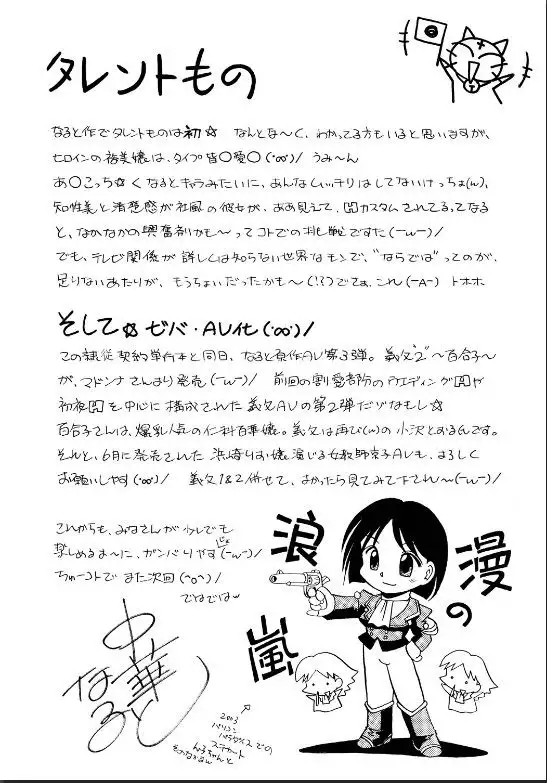 タレントもの
なると作でタレントものは初☆ なんとな～く、わかってる方もいると思いますが、
ヒロインの裕美嬢は、タイプ皆〇愛〇(・∞・)/ うみ～ん
あ〇こっち☆くなるとキャラみたいに、あんなしいッチリはしてないけっちょ(ω)、
知性美と清楚感が社風の彼女が、ああ見えて、図カスタムされてるってなる
と、なかなかの興奮剤かも～ってコトでの挑戦ですた(－ω－)/
でも、テレビ関係が詳しくは知らない世界なモンで、“ならでは”ってのが、
足りないあたりが、もうちょいだったかも～(!?)でてぁ、これ(－A－) トホホ
そして☆ ゼバ・AV化(・∞・)/
この隷従契約単行本と同日、なると原作AV第3弾。義父“2”～百合子～
が、マドンナさんより発売(－ω－)/ 前回の割愛者防のウエディング図や
初夜図を中心に構成された義父AVの第2弾だゾなもし☆
百合子さんは、爆乳人気の仁科百華嬢。義父は再び(ω)の小沢とおるんです。
それと、6月に発売された浜崎りお嬢演じる女教師京子AVも、よろしく
お願いしやす(・∞・)/ 義父1&2併せて、よかったら見てみて下され～(－ω－)/
これからも、みなさんが少しでも
楽しめるよーに、ガンバりやす(－ω－)/
ちゅーコトでまた次回(^o^)/
でわでわ
浪漫の嵐
中華
なると
2003